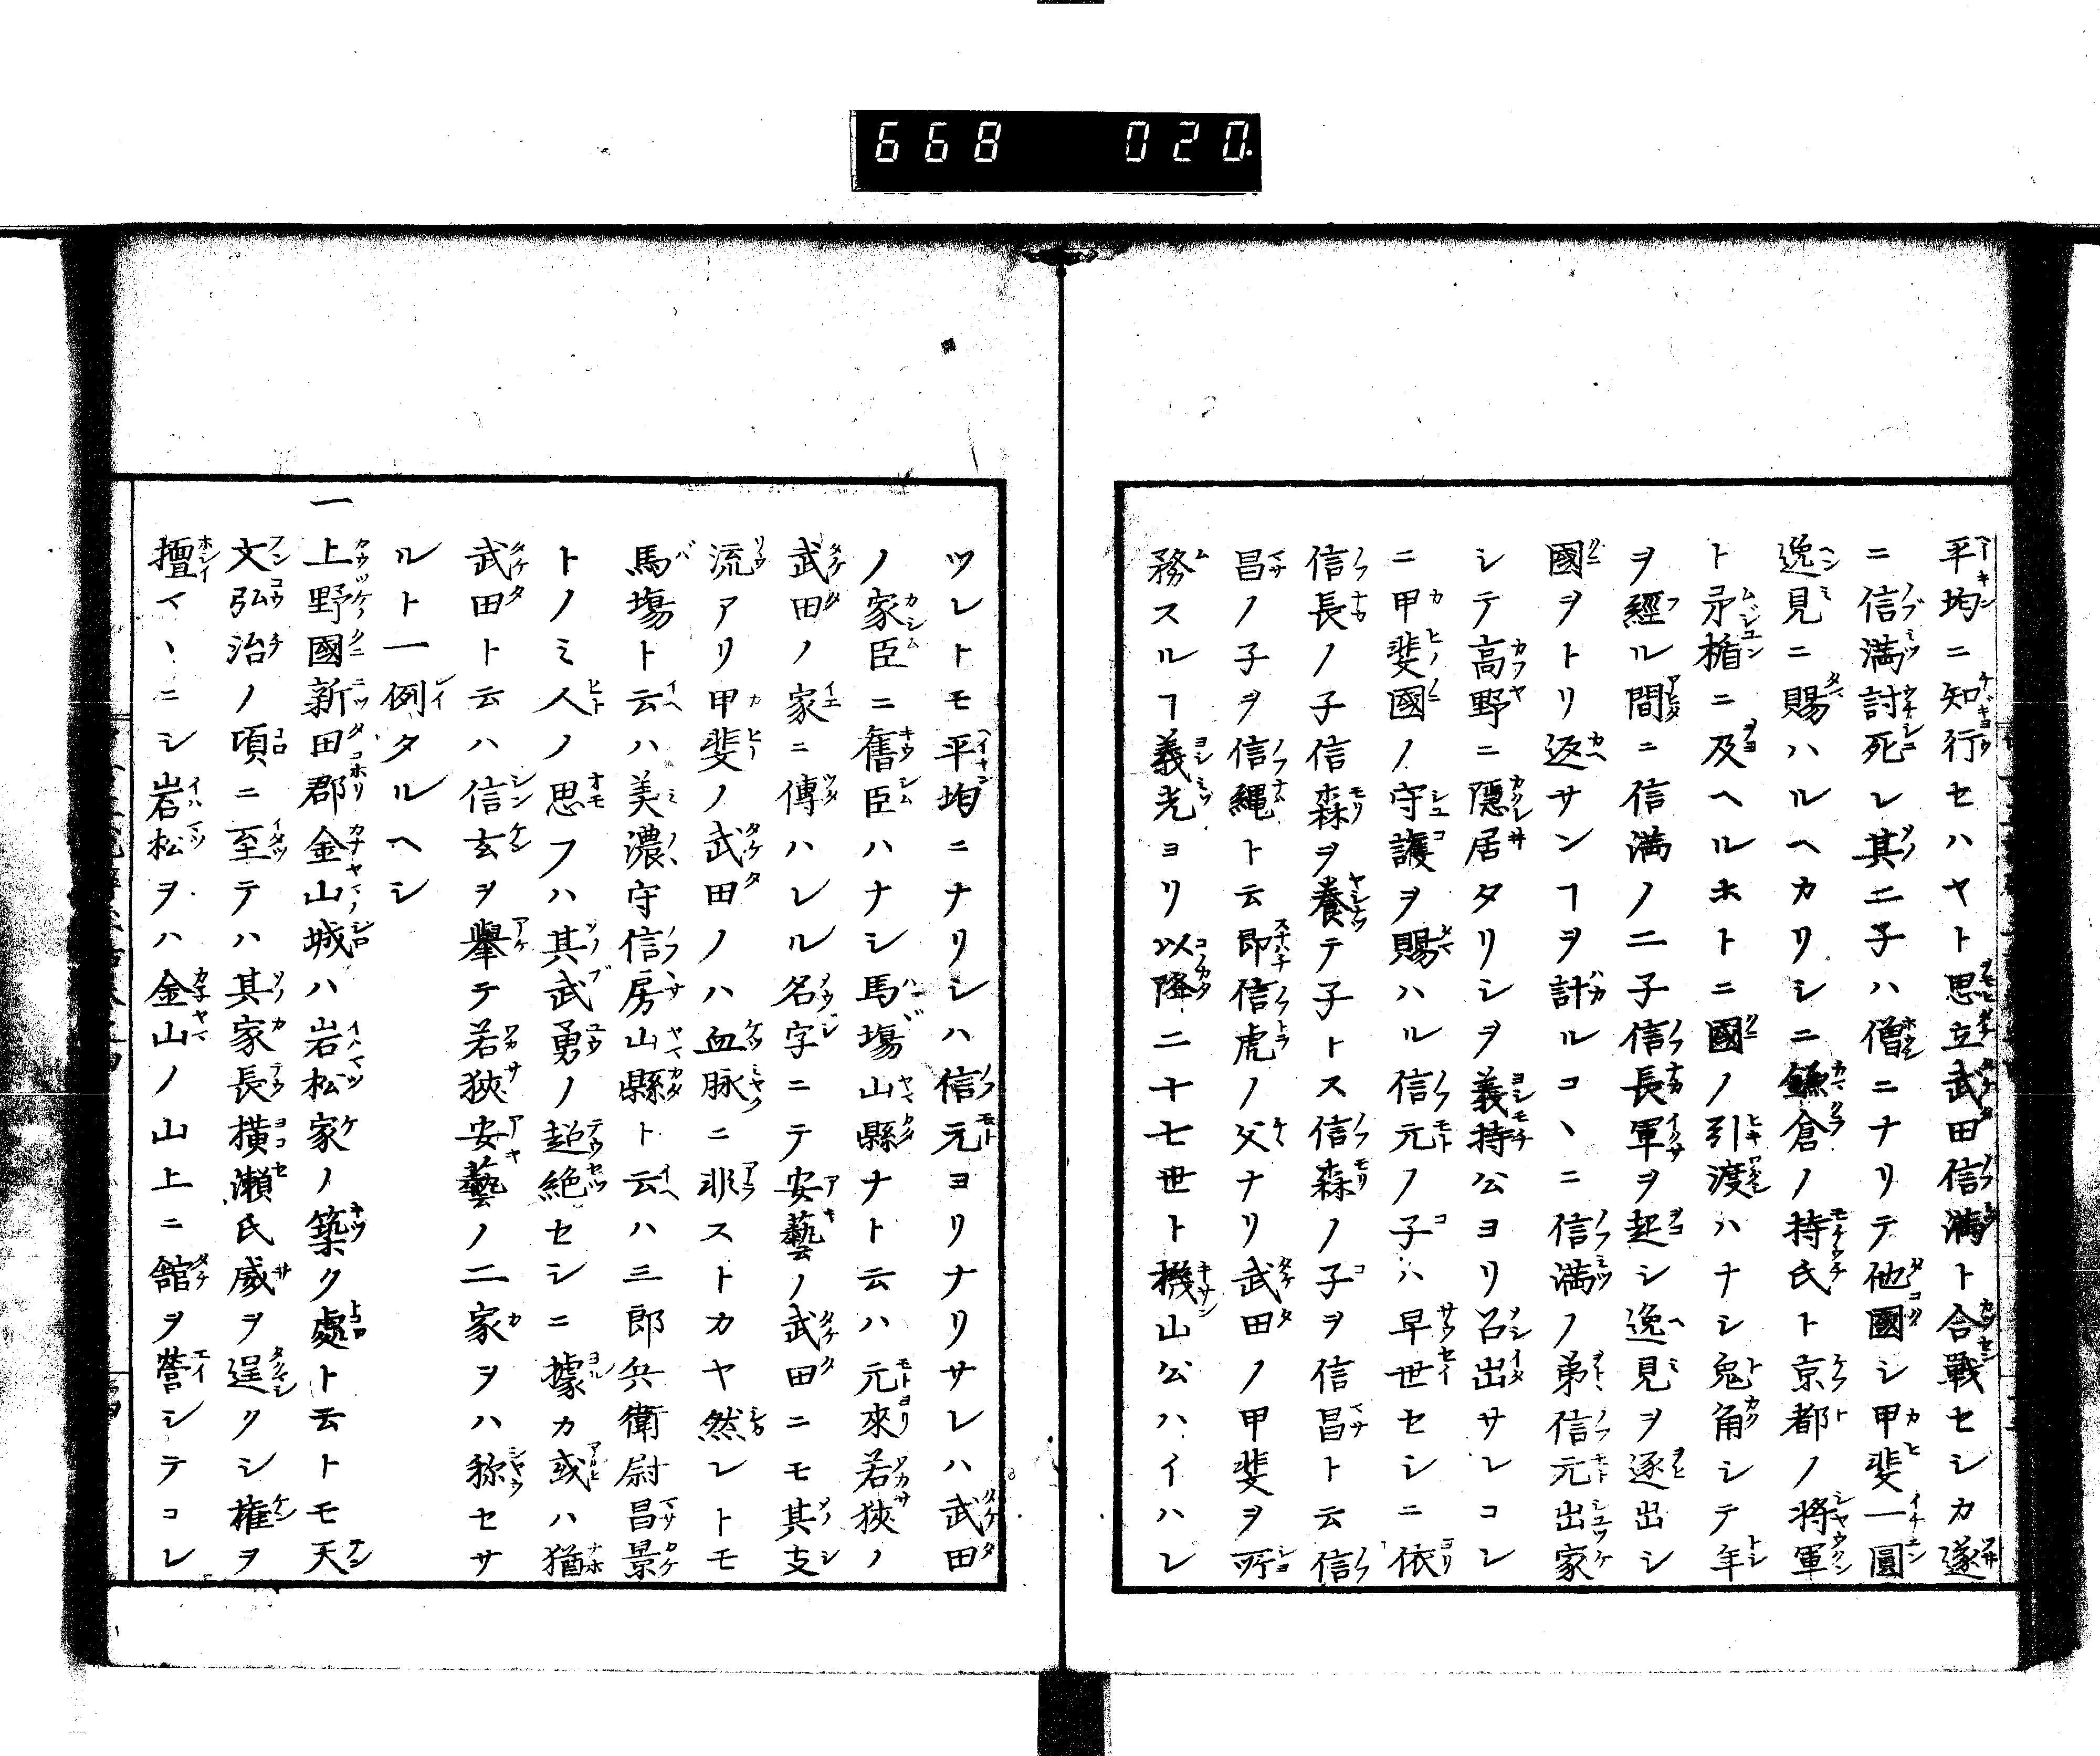 668 020.
平均ニ知行セハヤト思立武田信満ト合戰セシカ遂
ニ信満討死レ其二子ハ僧ニナリテ他國シ甲斐一圓
逸見ニ賜ハルヘカリシニ鎌倉ノ持氏ト京都ノ將軍
ト矛楯ニ及ヘルホトニ國ノ引渡ハナシ兎角シテ年
ヲ經ル間ニ信満ノ二子信長軍ヲ起シ逸見ヲ逐出シ
國ヲトリ返サンヿヲ計ルコヽニ信満ノ弟信元出家
シテ高野ニ隱居タリシヲ義持公ヨリ召出サレコレ
ニ甲斐國ノ守護ヲ賜ハル信元ノ子ハ早世セシニ依
信長ノ子信森ヲ養テ子トス信森ノ子ヲ信昌ト云信
昌ノ子ヲ信縄ト云即信虎ノ父ナリ武田ノ甲斐ヲ所
務スルヿ義光ヨリ以降二十七世ト機山公ハイハレ
ツレトモ平均ニナリシハ信元ヨリナリサレハ武田
ノ家臣ニ舊臣ハナシ馬塲山縣ナト云ハ元來若狹ノ
武田ノ家ニ傳ハレル名字ニテ安藝ノ武田ニモ其支
流アリ甲斐ノ武田ノハ血脉ニ非ストカヤ然レトモ
馬塲ト云ハ美濃守信房山縣ト云ハ三郎兵衛尉昌景
トノミ人ノ思フハ其武勇ノ超絶セシニ據カ或ハ猶
武田ト云ハ信玄ヲ擧テ若狹安藝ノ二家ヲハ称セサ
ルト一例タルヘシ
一上野國新田郡金山城ハ岩松家ノ築ク處ト云トモ天
文弘治ノ項ニ至テハ其家長橫瀨氏威ヲ逞クシ權ヲ
擅マヽニシ岩松ヲハ金山ノ山上ニ舘ヲ營シテコレ